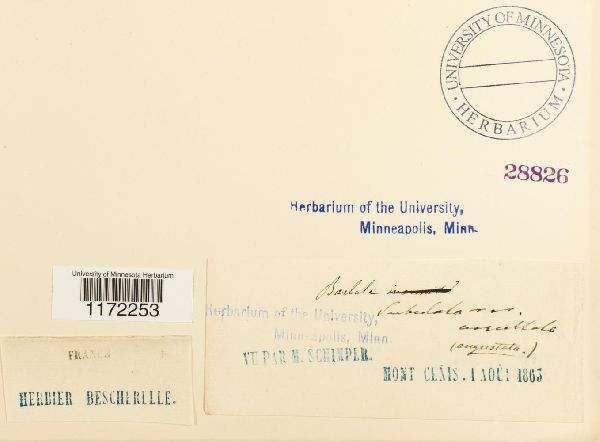 UNIVERSITY OF MINNESOTA
· HERBARIUM ·
28826
Herbarium of the University,
Minneapolis, Minn.
University of Minnesota Herbarium
1172253
FRANCE
HERBIER BESCHERELLE.
Herbarium of the University,
Minneapolis, Minn.
(angustata.)
VU PAR M. SCHIMPER.
MONT CENIS. 1 AOÛT 1863